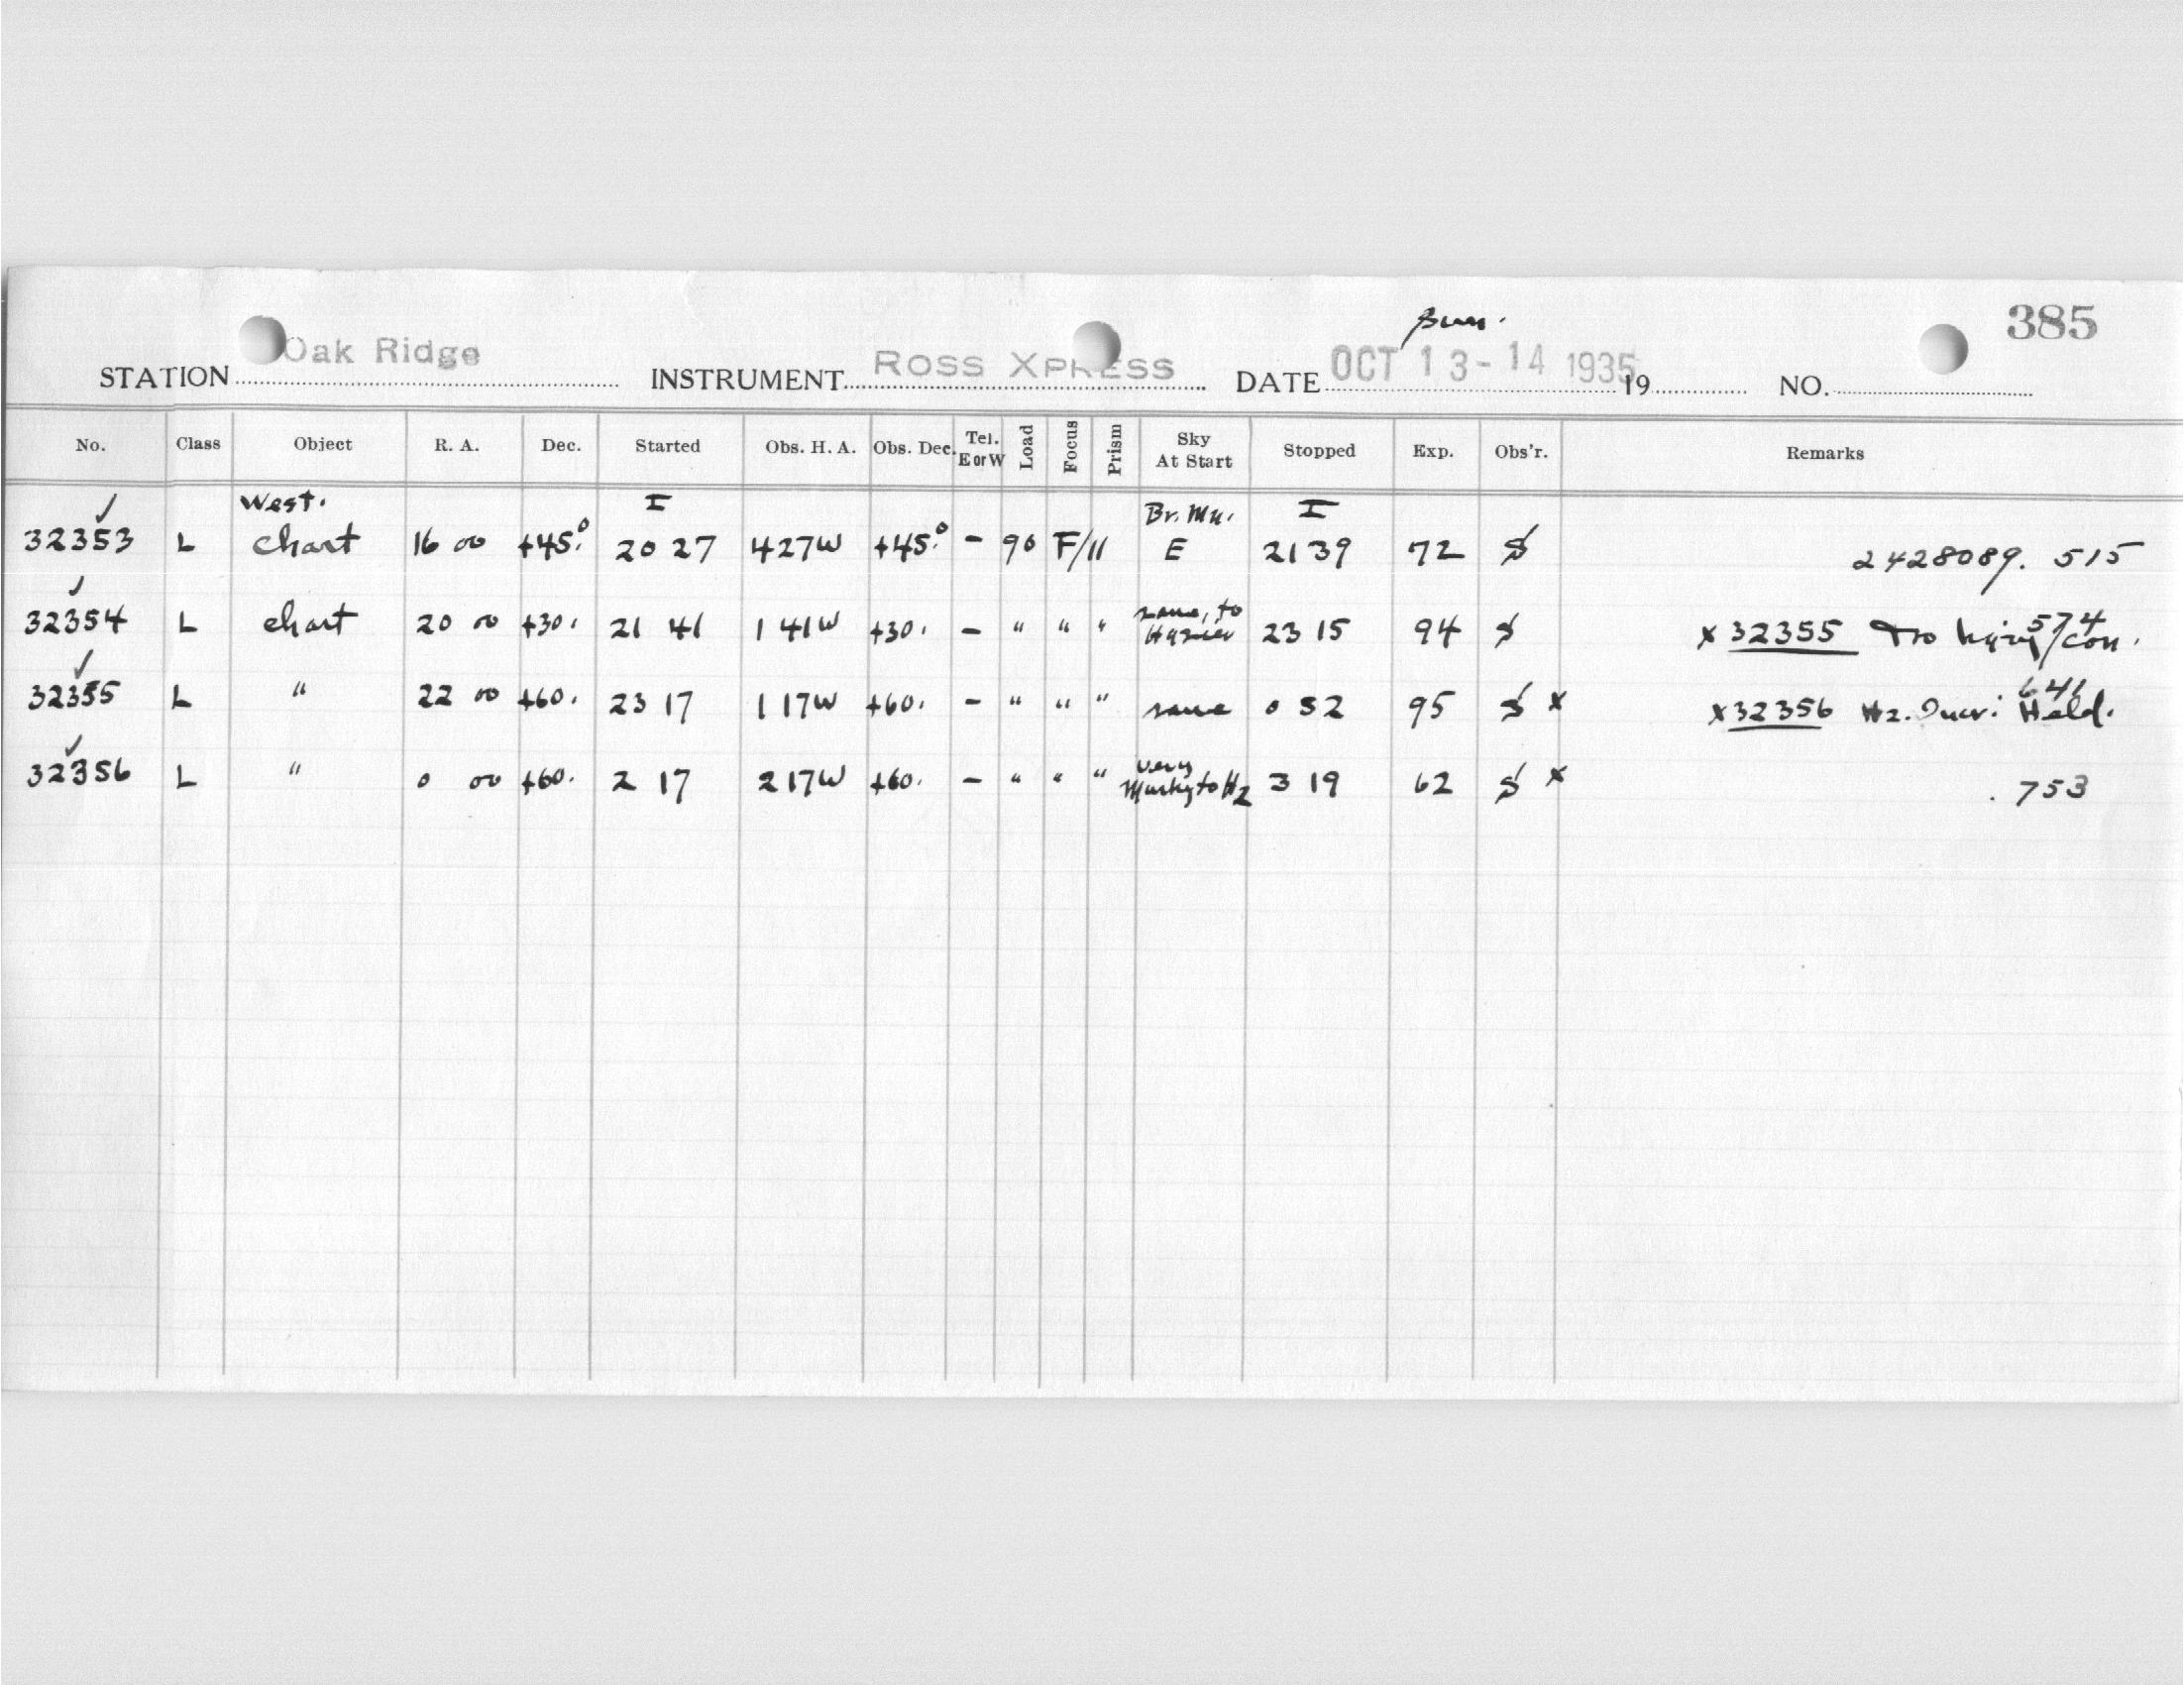 Sun. 385
STATION Oak Ridge INSTRUMENT ROSS XPRESS DATE OCT 13-14 1935 19 NO.
No. Class Object R. A. Dec. Started Obs. H. A. Obs. Dec. Tel. E or W Load Focus Prism Sky At Start Stopped Exp. Obs'r. Remarks
West. I Br. Mu. I
32353 L chart 16 00 +45.° 20 27 4 27W +45.° - 90 F/11 E 21 39 72 2428089. 515
32354 L chart 20 00 +30. 21 41 1 41W +30. - " " " same, to Hazier 23 15 94 .574
x 32355 No Con.
32355 L " 22 00 +60. 23 17 1 17W +60. - " " " same 0 52 95 x .641
x 32356 Hz. Held.
32356 L " 0 00 +60. 2 17 2 17W +60. - " " " very Murky to Hz 3 19 62 x .753